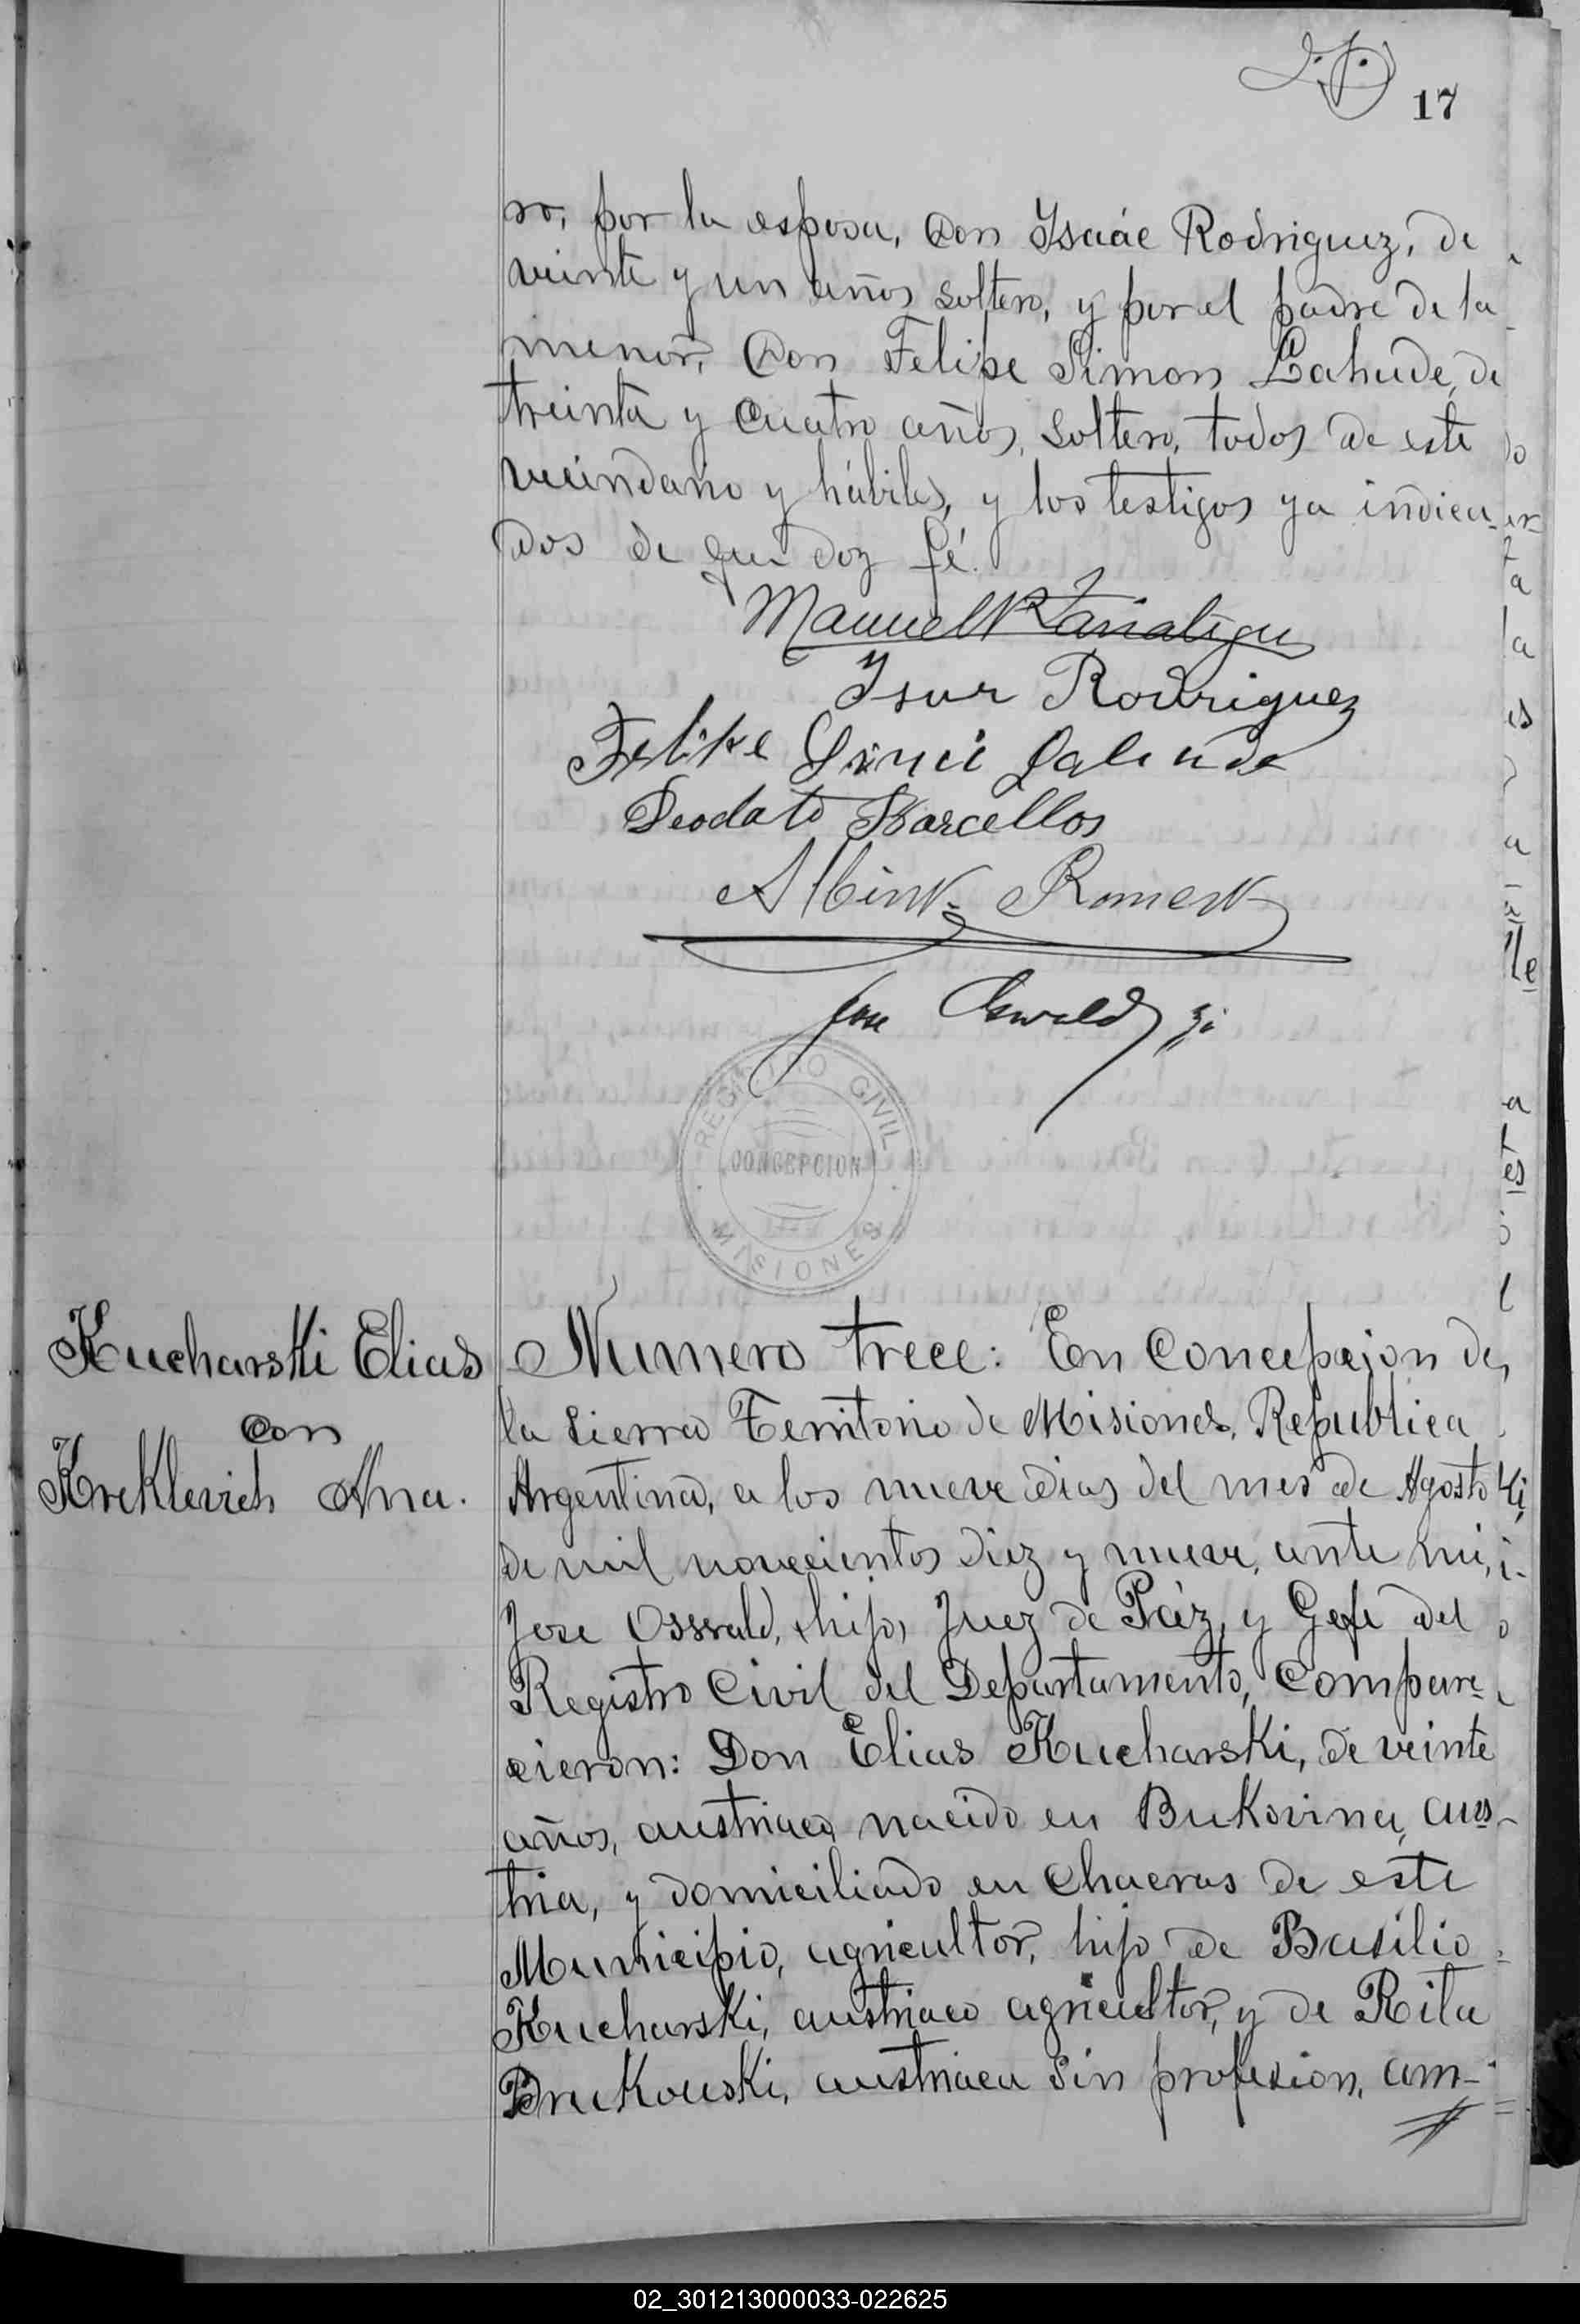 17
ro, por la esposa, Don Ysaác Rodriguez, de
veinte y un años soltero, y por el padre de la
menor, Don Felipe Simon Lahude, de
treinta y cuatro años, soltero, todos de este
vecindario y hábiles, y los testigos ya indica-
dos de que doy fé.
Manuel
Rodriguez
Felipe
Deodato Barcellos
Jose Oswald
REGISTRO CIVIL
CONCEPCION
MISIONES
Kucharski Elias
con
Kreklevich Ana.
Numero trece: En Concepcion de
la Sierra Territorio de Misiones, Republica
Argentina, a los nueve dias del mes de Agosto
de mil novecientos diez y nueve, ante mi,
Jose Osswald, hijo, Juez de Páz, y Gefe del
Registro Civil del Departamento, Compare-
cieron: Don Elias Kucharski, de veinte
años, austriaco nacido en Bukovina, aus-
tria, y domiciliado en chacras de este
Municipio, agricultor, hijo de Basilio
Kucharski, austriaco agricultor, y de Rita
Brukouski, austriaca sin profesion, am-
02_301213000033-022625